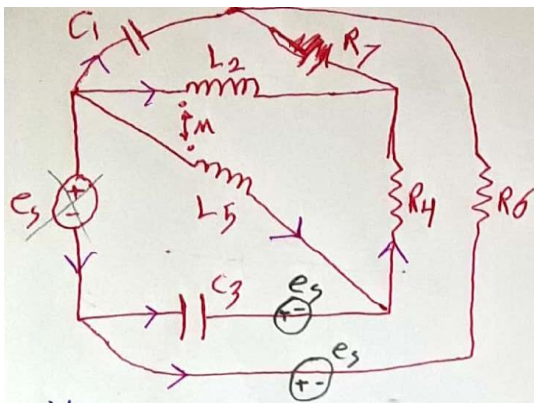 C1
R7
L2
M
es
+
-
L5
R4
R6
C3
es
+-
es
+-